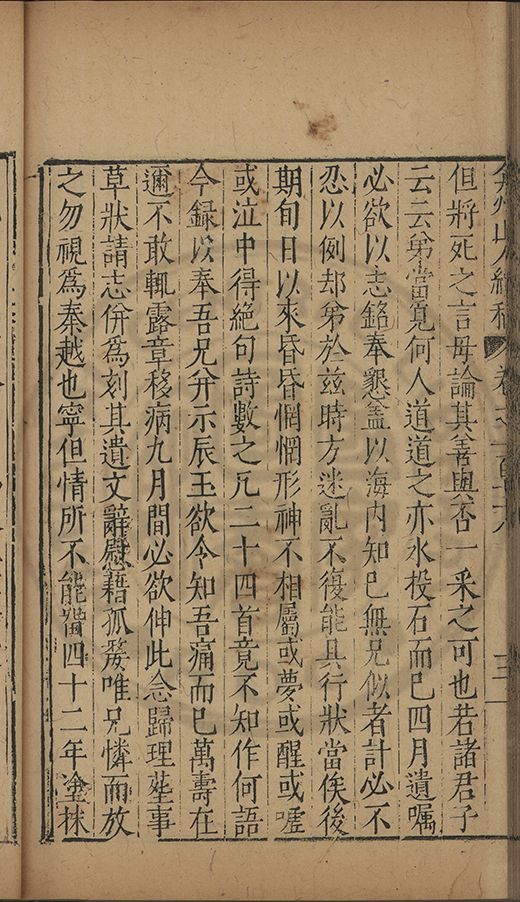 弇州山人續稿 卷之一百 三
但將死之言毋論其善與否一采之可也若諸君子
云云弟當覓何人道道之亦水投石而已四月遺囑
必欲以志銘奉懇蓋以海內知已無兄似者計必不
忍以例却弟於茲時方迷亂不復能具行狀當俟後
期旬日以來昏昏惘惘形神不相屬或夢或醒或嚏
或泣中得絕句詩數之凡二十四首竟不知作何語
今錄以奉吾兄并示辰玉欲令知吾痛而已萬壽在
邇不敢輒露章移病九月間必欲伸此念歸理塟事
草狀請志併為刻其遺文辭慰藉孤嫠唯兄憐而放
之勿視爲秦越也寧但情所不能酱四十二年塗抹